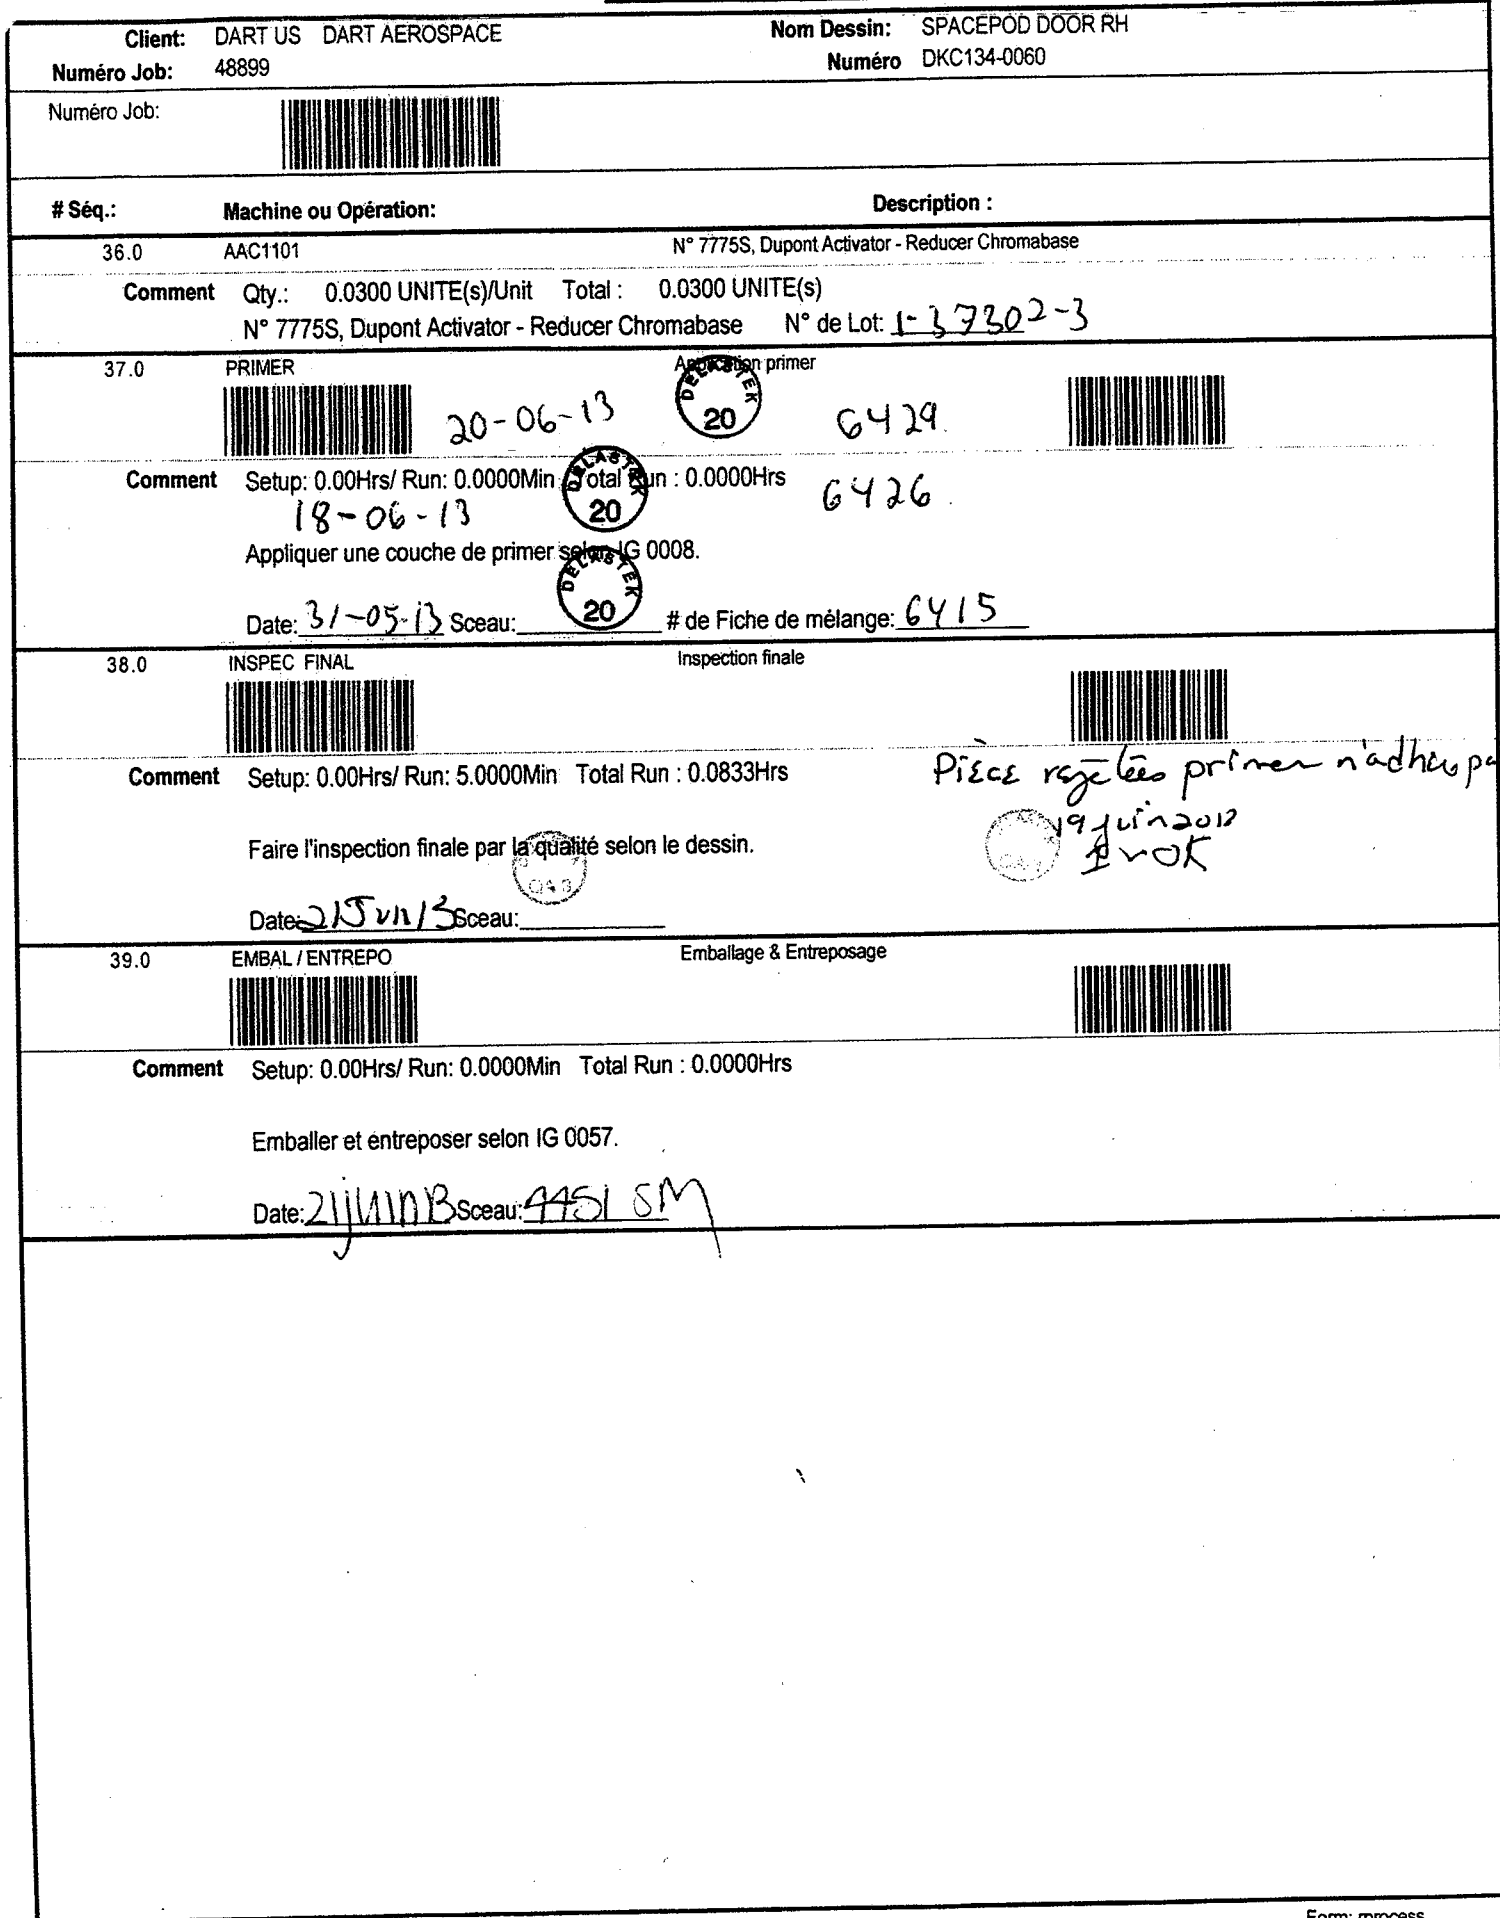 Client: DART US DART AEROSPACE Nom Dessin: SPACEPOD DOOR RH
Numéro Job: 48899 Numéro DKC134-0060
Numéro Job:
# Séq.: Machine ou Opération: Description :
36.0 AAC1101 N° 7775S, Dupont Activator - Reducer Chromabase
Comment Qty.: 0.0300 UNITE(s)/Unit Total : 0.0300 UNITE(s)
N° 7775S, Dupont Activator - Reducer Chromabase N° de Lot: 1-37302-3
37.0 PRIMER Application primer
20-06-13 DELASTEK 20 6429.
Comment Setup: 0.00Hrs/ Run: 0.0000Min Total Run : 0.0000Hrs
18-06-13 DELASTEK 20 6426.
Appliquer une couche de primer selon IG 0008.
Date: 31-05-13 Sceau: DELASTEK 20 # de Fiche de mélange: 6415
38.0 INSPEC FINAL Inspection finale
Comment Setup: 0.00Hrs/ Run: 5.0000Min Total Run : 0.0833Hrs
Pièce rejetées primer n'adhère pa
19 juin 2013
Faire l'inspection finale par la qualité selon le dessin.
Date: 21 Juin 13 Sceau:
39.0 EMBAL / ENTREPO Emballage & Entreposage
Comment Setup: 0.00Hrs/ Run: 0.0000Min Total Run : 0.0000Hrs
Emballer et entreposer selon IG 0057.
Date: 21juin13 Sceau: 4451 SM
Form: rprocess